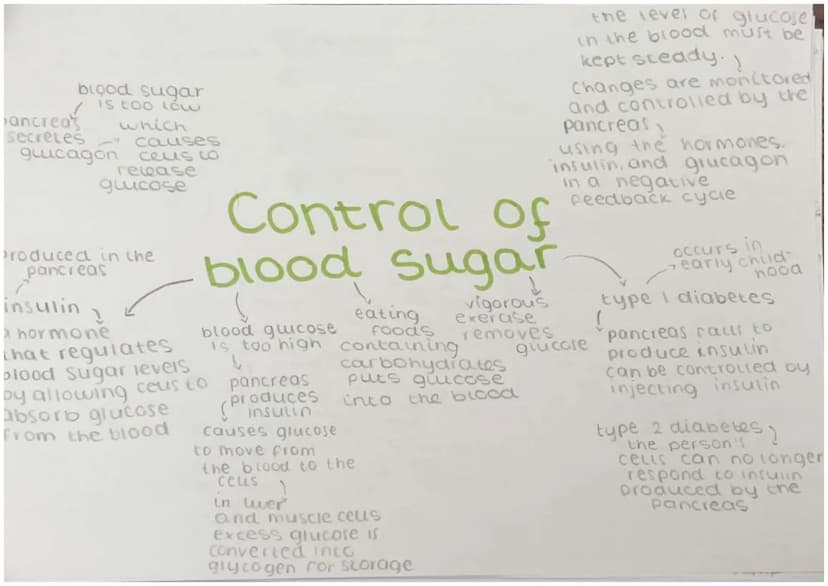 Control of
blood sugar
the level of glucose
in the blood must be
kept steady.
changes are monitored
and controlled by the
pancreas
using the hormones,
insulin, and glucagon
in a negative
feedback cycle
blood sugar
is too low
pancreas
secretes
glucagon
which
causes
cells to
release
glucose
produced in the
pancreas
insulin
a hormone
that regulates
blood sugar levels
by allowing cells to
absorb glucose
from the blood
blood glucose
is too high
pancreas
produces
insulin
causes glucose
to move from
the blood to the
cells
in liver
and muscle cells
excess glucose is
converted into
glycogen for storage
eating
foods
containing
carbohydrates
puts glucose
into the blood
vigorous
exerase
removes
glucose
type 1 diabetes
occurs in
early child-
hood
pancreas fails to
produce insulin
can be controlled by
injecting insulin
type 2 diabetes
the person's
cells can no longer
respond to insulin
produced by the
pancreas